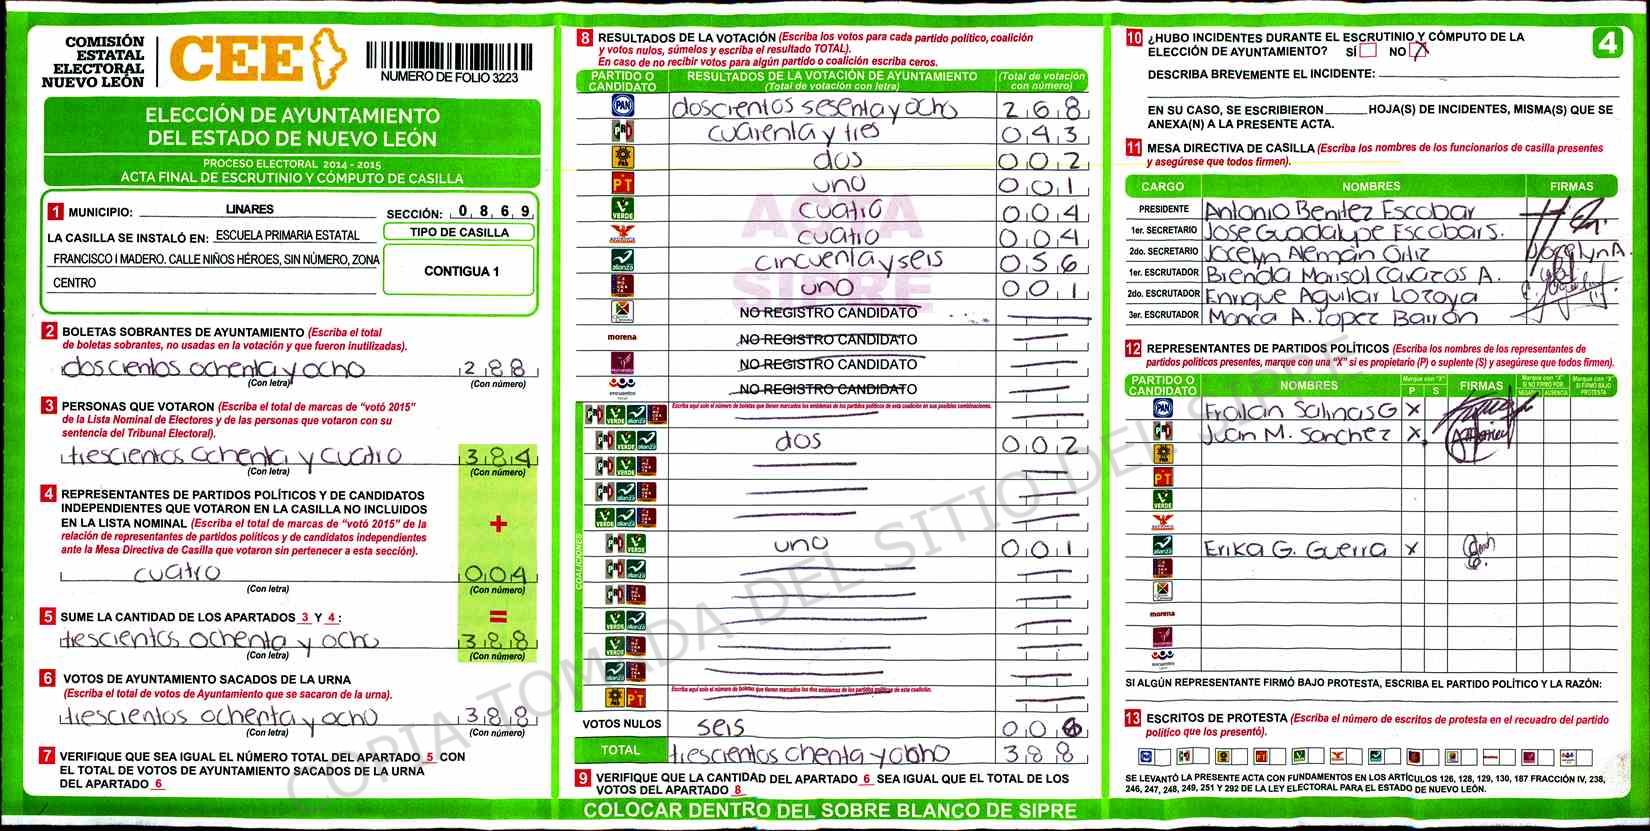 COMISIÓN
ESTATAL
ELECTORAL
NUEVO LEÓN
CEE
NUMERO DE FOLIO 3223
ELECCIÓN DE AYUNTAMIENTO
DEL ESTADO DE NUEVO LEÓN
PROCESO ELECTORAL 2014 - 2015
ACTA FINAL DE ESCRUTINIO Y CÓMPUTO DE CASILLA
1 MUNICIPIO: LINARES SECCIÓN: 0 8 6 9
LA CASILLA SE INSTALÓ EN: ESCUELA PRIMARIA ESTATAL
FRANCISCO I MADERO. CALLE NIÑOS HÉROES, SIN NÚMERO, ZONA
CENTRO
TIPO DE CASILLA
CONTIGUA 1
2 BOLETAS SOBRANTES DE AYUNTAMIENTO (Escriba el total
de boletas sobrantes, no usadas en la votación y que fueron inutilizadas).
doscientos ochenta y ocho 2 8 8
(Con letra) (Con número)
3 PERSONAS QUE VOTARON (Escriba el total de marcas de "votó 2015"
de la Lista Nominal de Electores y de las personas que votaron con su
sentencia del Tribunal Electoral).
trescientos ochenta y cuatro 3 8 4
(Con letra) (Con número)
4 REPRESENTANTES DE PARTIDOS POLÍTICOS Y DE CANDIDATOS
INDEPENDIENTES QUE VOTARON EN LA CASILLA NO INCLUIDOS
EN LA LISTA NOMINAL (Escriba el total de marcas de "votó 2015" de la
relación de representantes de partidos políticos y de candidatos independientes
ante la Mesa Directiva de Casilla que votaron sin pertenecer a esta sección).
+
cuatro 0 0 4
(Con letra) (Con número)
5 SUME LA CANTIDAD DE LOS APARTADOS 3 Y 4 : =
trescientos ochenta y ocho 3 8 8
(Con letra) (Con número)
6 VOTOS DE AYUNTAMIENTO SACADOS DE LA URNA
(Escriba el total de votos de Ayuntamiento que se sacaron de la urna).
trescientos ochenta y ocho 3 8 8
(Con letra) (Con número)
7 VERIFIQUE QUE SEA IGUAL EL NÚMERO TOTAL DEL APARTADO 5 CON
EL TOTAL DE VOTOS DE AYUNTAMIENTO SACADOS DE LA URNA
DEL APARTADO 6
8 RESULTADOS DE LA VOTACIÓN (Escriba los votos para cada partido político, coalición
y votos nulos, súmelos y escriba el resultado TOTAL).
En caso de no recibir votos para algún partido o coalición escriba ceros.
PARTIDO O CANDIDATO RESULTADOS DE LA VOTACIÓN DE AYUNTAMIENTO (Total de votación con letra) (Total de votación con número)
PAN doscientos sesenta y ocho 2 6 8
PRI cuarenta y tres 0 4 3
PRD dos 0 0 2
PT uno 0 0 1
VERDE cuatro 0 0 4
cuatro 0 0 4
alianza cincuenta y seis 0 5 6
uno 0 0 1
NO REGISTRO CANDIDATO
morena NO REGISTRO CANDIDATO
NO REGISTRO CANDIDATO
encuentro NO REGISTRO CANDIDATO
COALICIONES
Escriba aquí solo el número de boletas que tienen marcados los emblemas de los partidos políticos de esta coalición en sus posibles combinaciones.
PRI VERDE alianza dos 0 0 2
PRI VERDE uno 0 0 1
Escriba aquí solo el número de boletas que tienen marcados los dos emblemas de los partidos políticos de esta coalición.
VOTOS NULOS seis 0 0 6
TOTAL trescientos chenta y ocho 3 8 8
9 VERIFIQUE QUE LA CANTIDAD DEL APARTADO 6 SEA IGUAL QUE EL TOTAL DE LOS
VOTOS DEL APARTADO 8
COLOCAR DENTRO DEL SOBRE BLANCO DE SIPRE
ACTA
SIPRE
COPIA TOMADA DEL SITIO DEL SIPRE
10 ¿HUBO INCIDENTES DURANTE EL ESCRUTINIO Y CÓMPUTO DE LA
ELECCIÓN DE AYUNTAMIENTO? SÍ NO X
4
DESCRIBA BREVEMENTE EL INCIDENTE:
EN SU CASO, SE ESCRIBIERON HOJA(S) DE INCIDENTES, MISMA(S) QUE SE
ANEXA(N) A LA PRESENTE ACTA.
11 MESA DIRECTIVA DE CASILLA (Escriba los nombres de los funcionarios de casilla presentes
y asegúrese que todos firmen).
CARGO NOMBRES FIRMAS
PRESIDENTE Antonio Benitez Escobar
1er. SECRETARIO Jose Guadalupe Escobar S.
2do. SECRETARIO Jocelyn Alemán Ortiz Jocelyn A.
1er. ESCRUTADOR Brenda Marisol Cavazos A.
2do. ESCRUTADOR Enrique Aguilar Lozoya
3er. ESCRUTADOR Monica A. Lopez Bairón
12 REPRESENTANTES DE PARTIDOS POLÍTICOS (Escriba los nombres de los representantes de
partidos políticos presentes, marque con una "X" si es propietario (P) o suplente (S) y asegúrese que todos firmen).
PARTIDO O CANDIDATO NOMBRES Marque con "X" P S FIRMAS Marque con "X" SI NO FIRMÓ POR: NEGATIVA AUSENCIA Marque con "X" SI FIRMÓ BAJO PROTESTA
PAN Froilan Salinas G X
PRI Juan M. Sanchez X
PRD
PT
VERDE
alianza Erika G. Guerra X
morena
encuentro
SI ALGÚN REPRESENTANTE FIRMÓ BAJO PROTESTA, ESCRIBA EL PARTIDO POLÍTICO Y LA RAZÓN:
13 ESCRITOS DE PROTESTA (Escriba el número de escritos de protesta en el recuadro del partido
político que los presentó).
SE LEVANTÓ LA PRESENTE ACTA CON FUNDAMENTOS EN LOS ARTÍCULOS 126, 128, 129, 130, 187 FRACCIÓN IV, 238,
246, 247, 248, 249, 251 Y 292 DE LA LEY ELECTORAL PARA EL ESTADO DE NUEVO LEÓN.